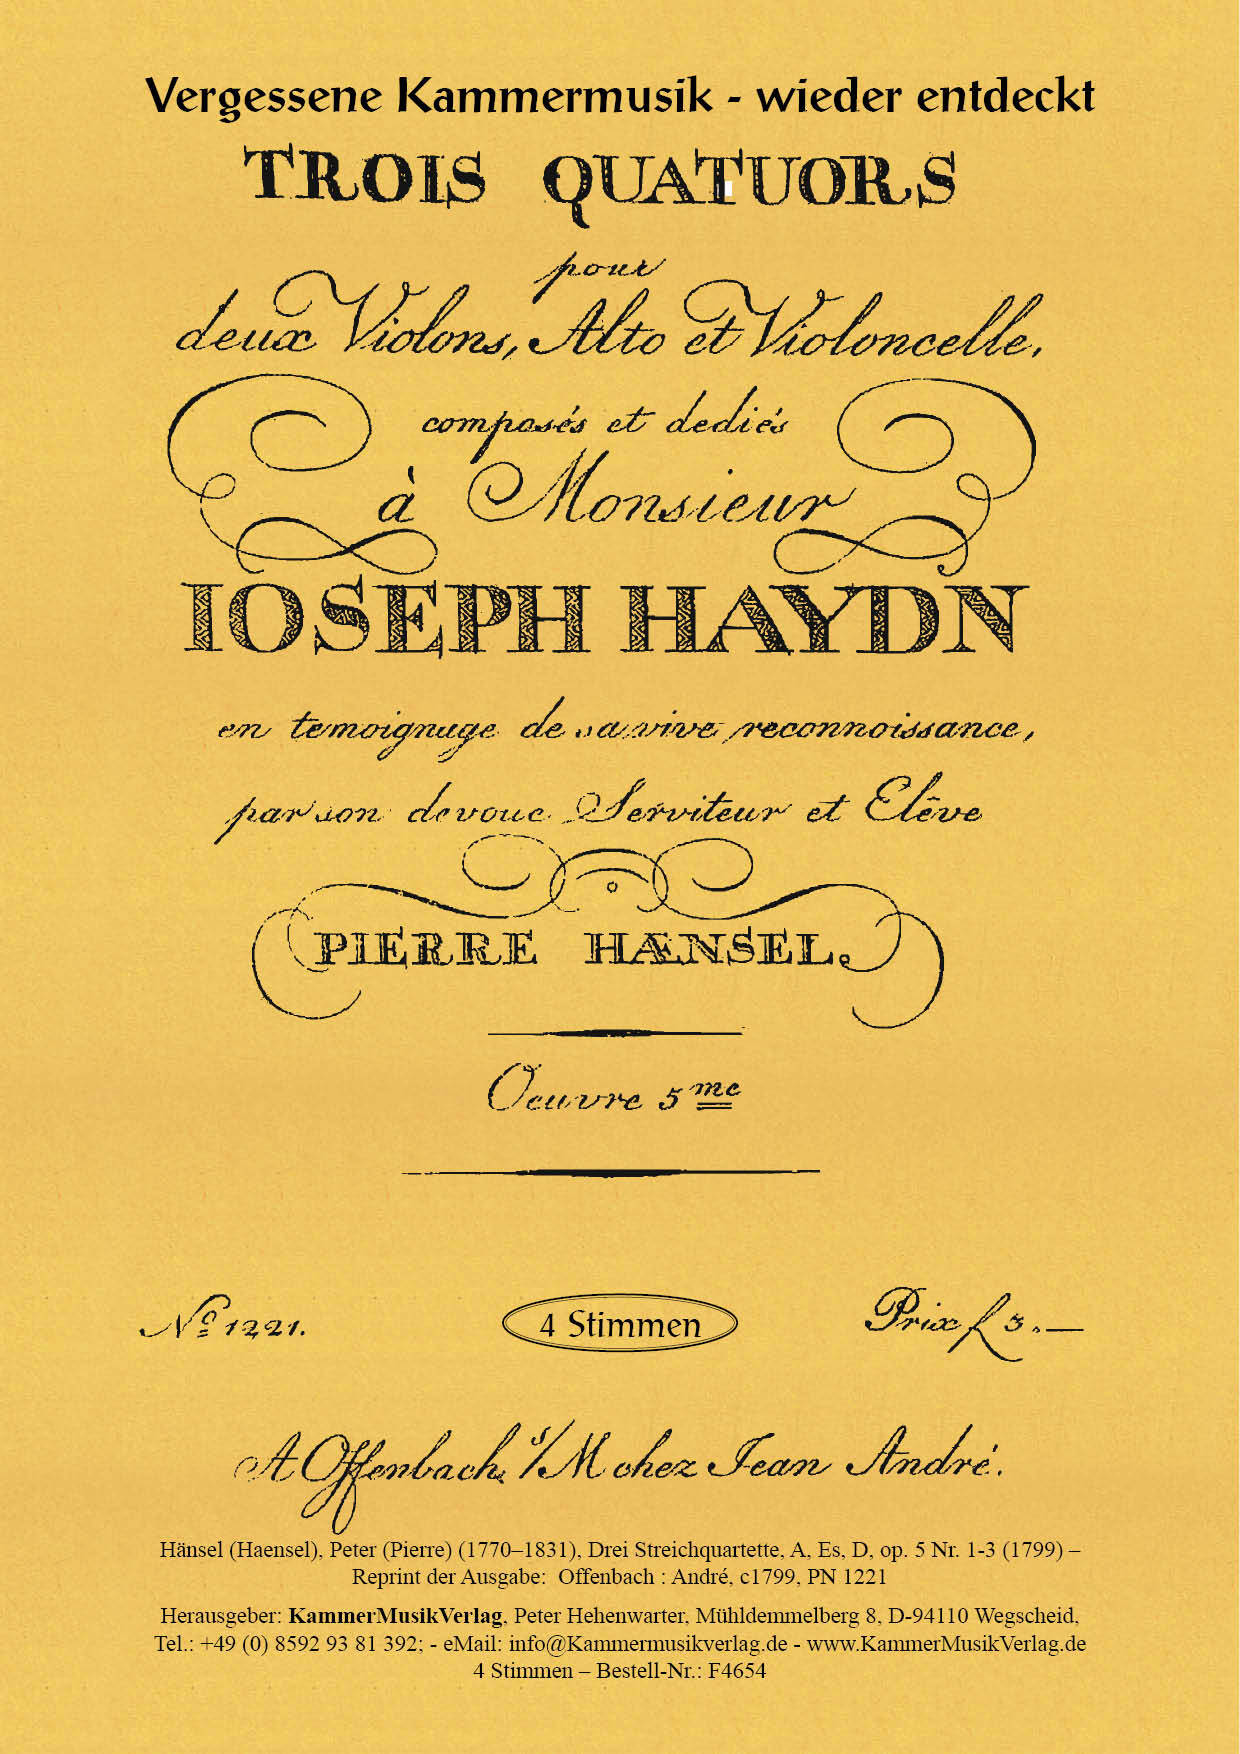 Vergessene Kammermusik - wieder entdeckt
TROIS QUATUORS
pour
deux Violons, Alto et Violoncelle,
composés et dediés
à Monsieur
IOSEPH HAYDN
en temoignage de sa vive reconnoissance,
par son devoué Serviteur et Elêve
PIERRE HÆNSEL.
Oeuvre 5me
No 1221.
4 Stimmen
Prix f 3.—
A Offenbach s/M chez Jean André.
Hänsel (Haensel), Peter (Pierre) (1770–1831), Drei Streichquartette, A, Es, D, op. 5 Nr. 1-3 (1799) –
Reprint der Ausgabe: Offenbach : André, c1799, PN 1221
Herausgeber: KammerMusikVerlag, Peter Hehenwarter, Mühldemmelberg 8, D-94110 Wegscheid,
Tel.: +49 (0) 8592 93 81 392; - eMail: info@Kammermusikverlag.de - www.KammerMusikVerlag.de
4 Stimmen – Bestell-Nr.: F4654